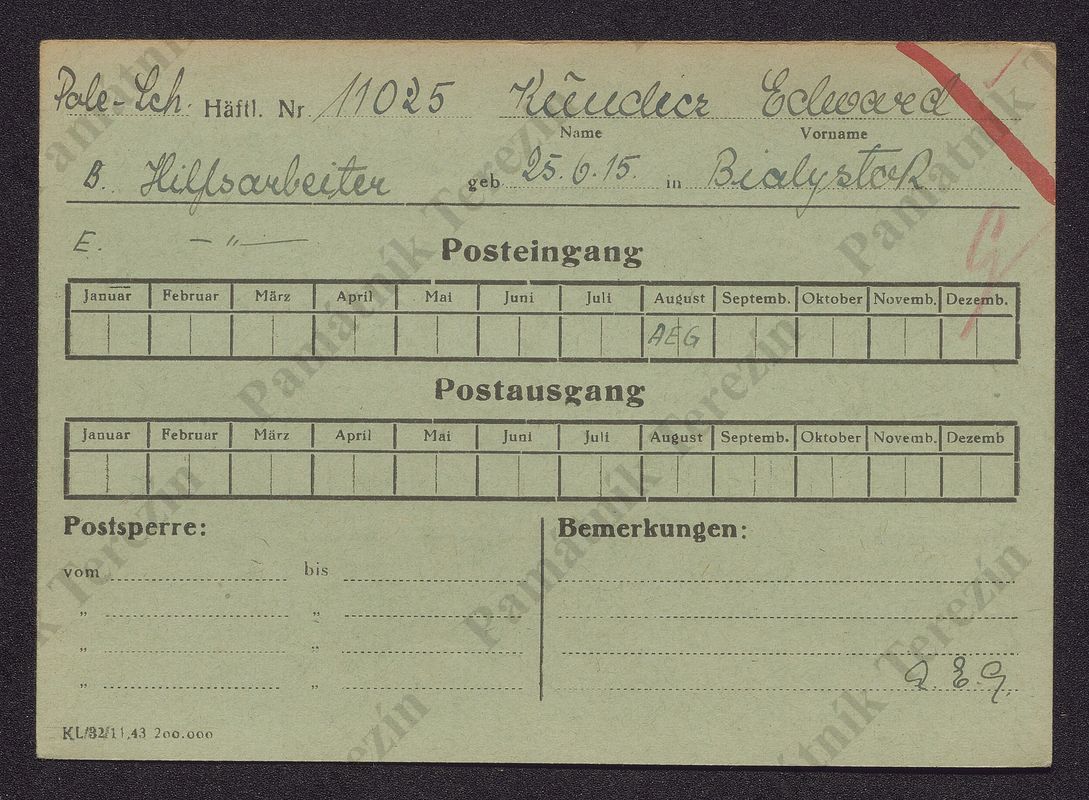 Pole-Sch. Häftl. Nr. 11025 Kündicz Edward
Name Vorname
B. Hilfsarbeiter geb. 25.6.15. in Bialystok
E. — " —
Posteingang
Januar Februar März April Mai Juni Juli August Septemb. Oktober Novemb. Dezemb.
AEG
Postausgang
Januar Februar März April Mai Juni Juli August Septemb. Oktober Novemb. Dezemb
Postsperre: Bemerkungen:
vom bis
" "
" "
" "
A.E.G.
KL/32/11.43 200.000
Památník Terezín